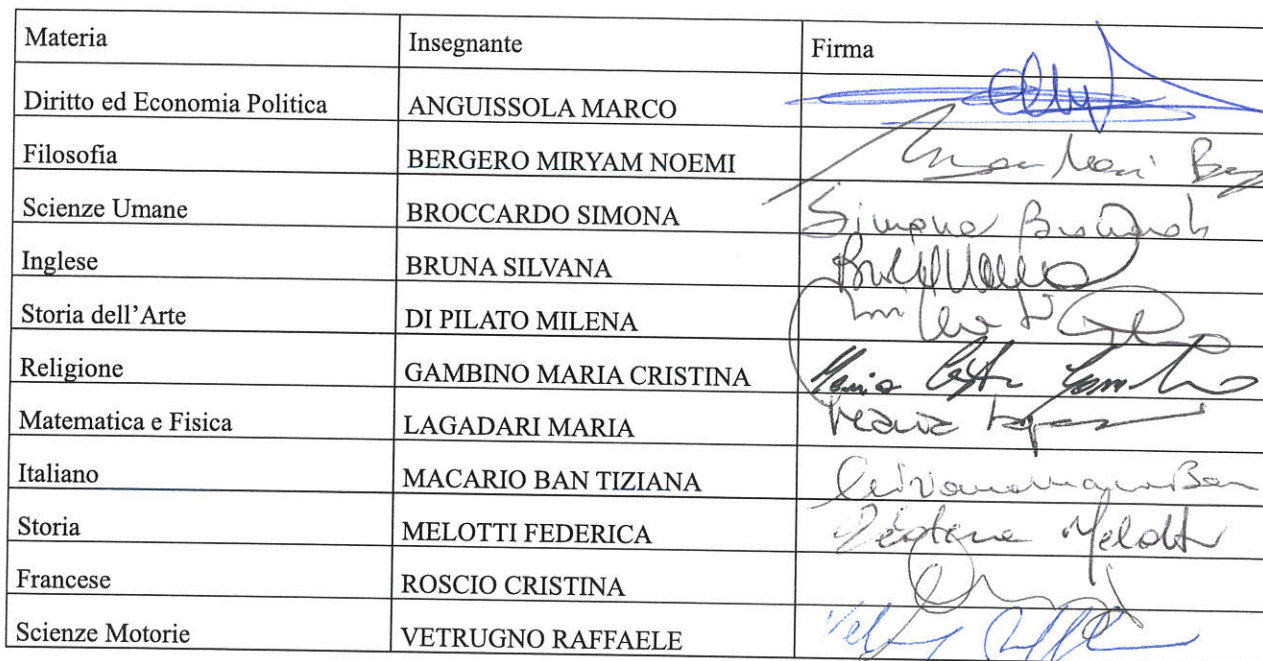 Materia Insegnante Firma
Diritto ed Economia Politica ANGUISSOLA MARCO
Filosofia BERGERO MIRYAM NOEMI
Scienze Umane BROCCARDO SIMONA Simona
Inglese BRUNA SILVANA
Storia dell’Arte DI PILATO MILENA
Religione GAMBINO MARIA CRISTINA Maria
Matematica e Fisica LAGADARI MARIA Maria
Italiano MACARIO BAN TIZIANA Ban
Storia MELOTTI FEDERICA Melotti
Francese ROSCIO CRISTINA
Scienze Motorie VETRUGNO RAFFAELE